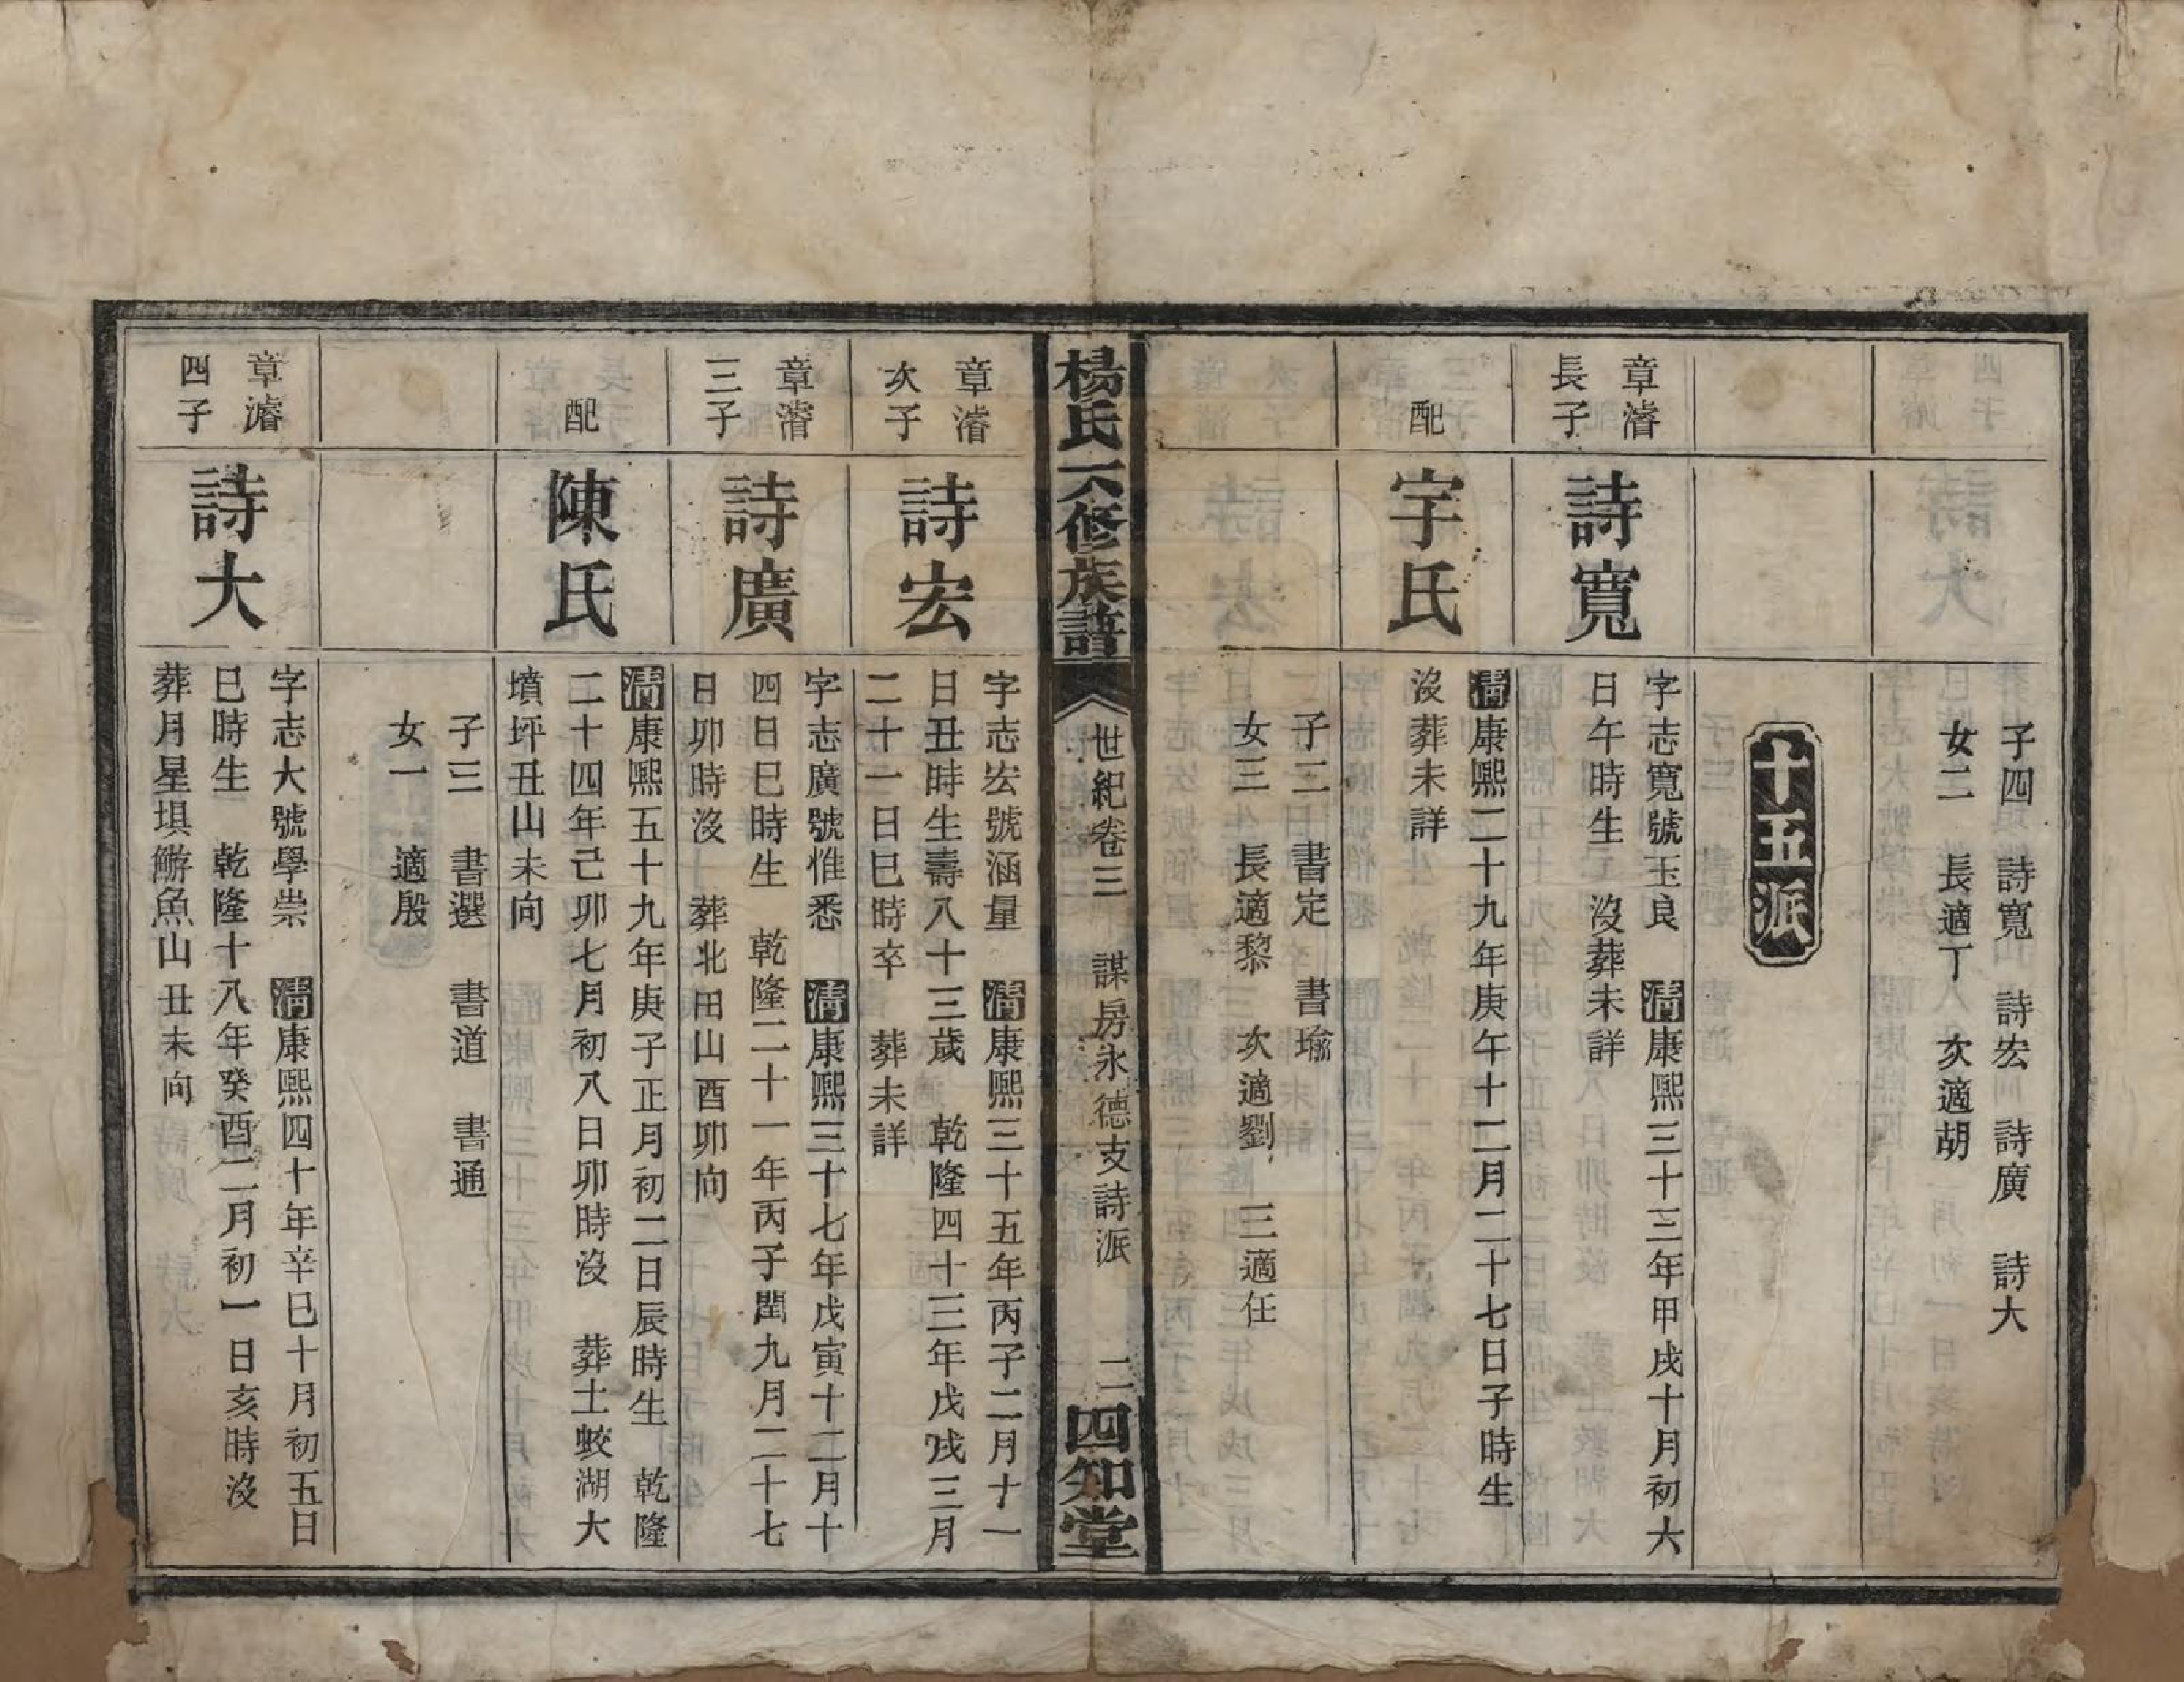 子四 詩寬 詩宏 詩廣 詩大
女二 長適丁 次適胡
十五派
章濬
長子
詩寬
字志寬號玉良 清康熙三十三年甲戌十月初六
日午時生 沒葬未詳
配
宇氏
清康熙二十九年庚午十二月二十七日子時生
沒葬未詳
子二 書定 書瑜
女三 長適黎 次適劉 三適任
楊氏六修族譜
世紀卷三 謀房永德支詩派 二
四知堂
章濬
次子
詩宏
字志宏號涵量 清康熙三十五年丙子二月十一
日丑時生壽八十三歲 乾隆四十三年戊戌三月
二十一日巳時卒 葬未詳
章濬
三子
詩廣
字志廣號惟悉 清康熙三十七年戊寅十二月十
四日巳時生 乾隆二十一年丙子閏九月二十七
日卯時沒 葬北田山酉卯向
配
陳氏
清康熙五十九年庚子正月初二日辰時生 乾隆
二十四年己卯七月初八日卯時沒 葬土蛟湖大
墳坪丑山未向
子三 書選 書道 書通
女一 適殷
章濬
四子
詩大
字志大號學崇 清康熙四十年辛巳十月初五日
巳時生 乾隆十八年癸酉二月初一日亥時沒
葬月星塤鰤魚山丑未向